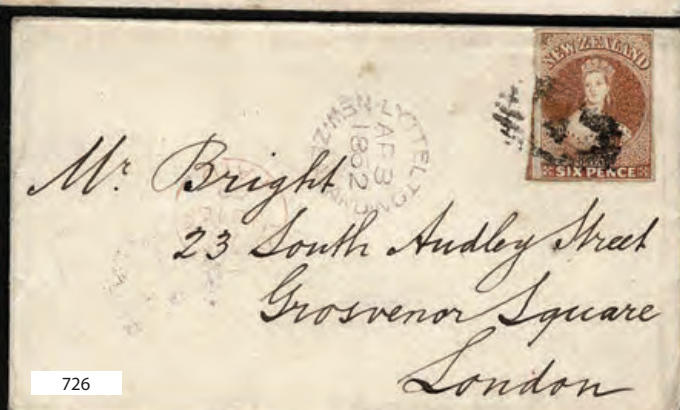 NEW ZEALAND
SIX PENCE
LYTTELTON
NEW-ZEALAND
AP 3
1862
Mr. Bright
23 South Audley Street
Grosvenor Square
London
726